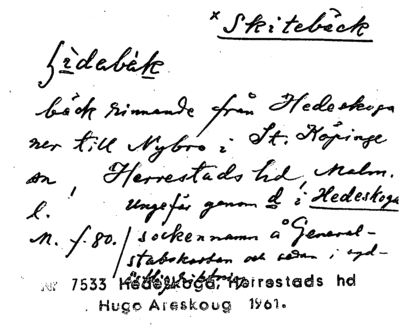 x Skitebäck
bäck rinnande från Hedeskoga
ner till Nybro i St. Köpinge
sn, Herrestads hd, Malm.
l. Ungefär genom d i Hedeskoga
M. f. 80. / sockennamn å General-
stabskartan och sedan i syd-
Nr 7533 Hedeskoga, Herrestads hd
Hugo Areskoug 1961.